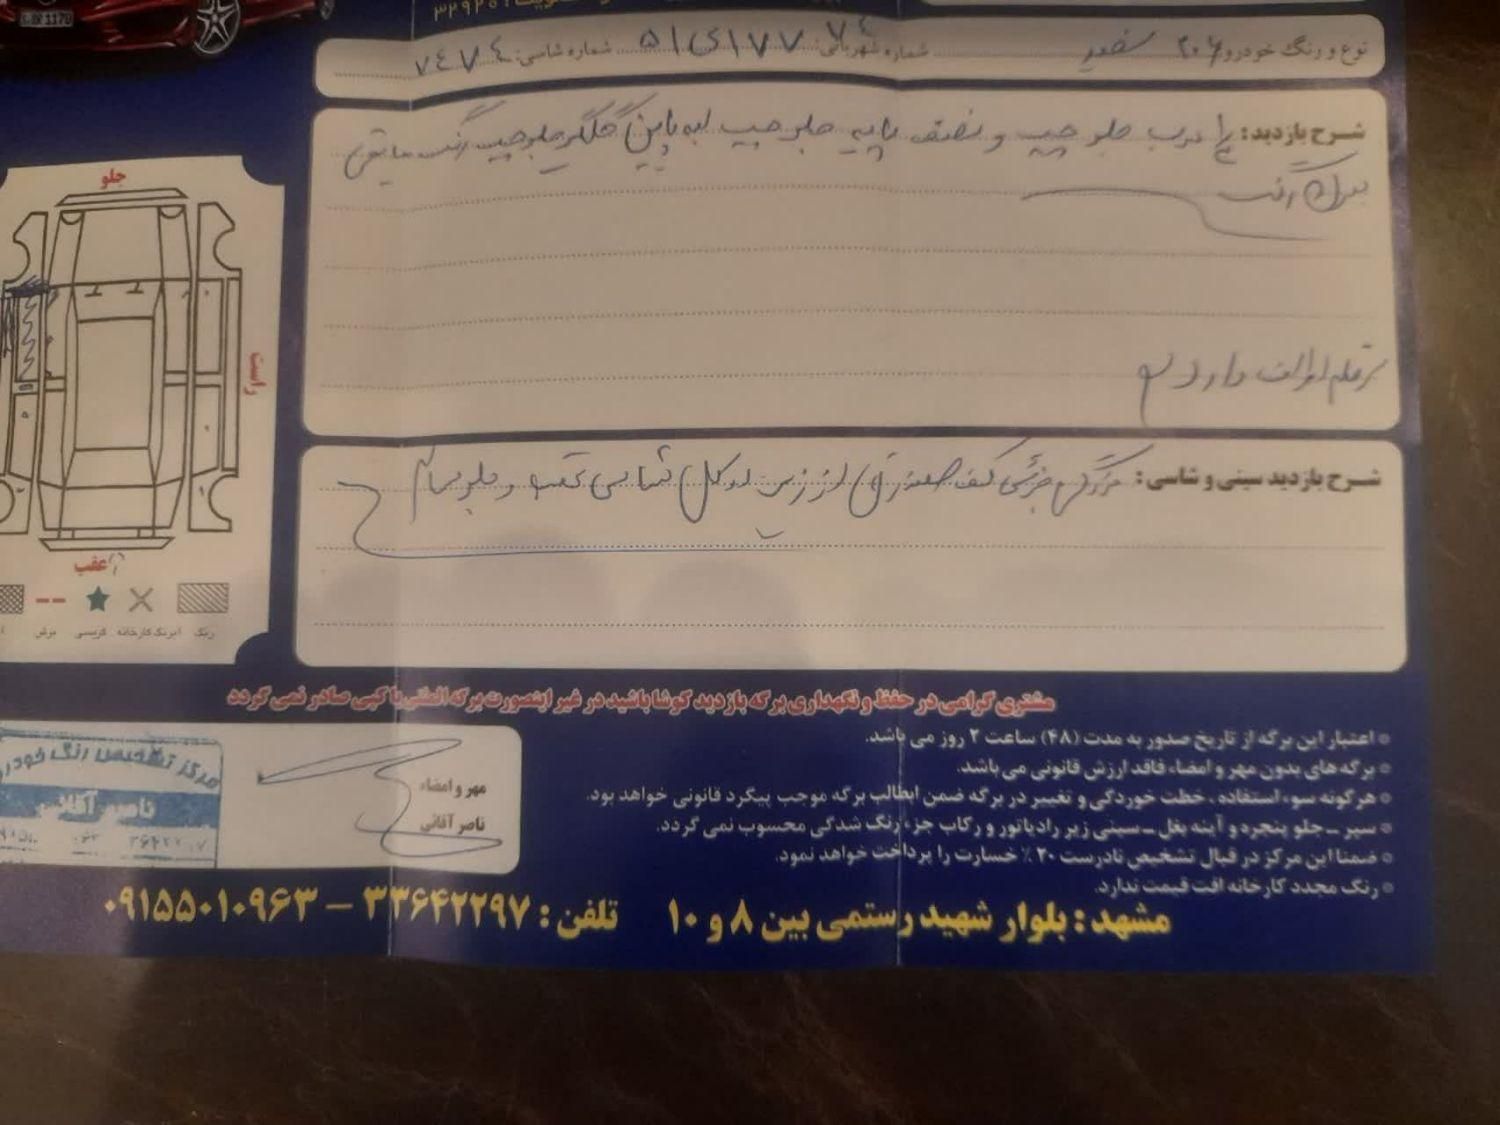 نوع و رنگ خودرو: ۲۰۶ سفید شماره شهربانی: ۷۴ ۵۱ی۱۷۷ شماره شاسی: ۷۴۷۴
شرح بازدید: درب جلو چپ و نصف پایه جلو چپ لبه پایین گلگیر جلو چپ رنگ مابقی
بیرنگ
دارد
جلو
راست
عقب
رنگ آبرنگ کارخانه گریسی برش
شرح بازدید سینی و شاسی: خوردگی جزئی کف صندوق از زیر کل شاسی عقب و جلو سالم
مشتری گرامی در حفظ و نگهداری برگه بازدید کوشا باشید در غیر اینصورت برگه المثنی یا کپی صادر نمی گردد
اعتبار این برگه از تاریخ صدور به مدت (۴۸) ساعت ۲ روز می باشد.
برگه های بدون مهر و امضاء فاقد ارزش قانونی می باشد.
هرگونه سوء استفاده ، خطت خوردگی و تغییر در برگه ضمن ابطالب برگه موجب پیگرد قانونی خواهد بود.
سپر - جلو پنجره و آینه بغل - سینی زیر رادیاتور و رکاب جزء رنگ شدگی محسوب نمی گردد.
ضمنا این مرکز در قبال تشخیص نادرست ۲۰٪ خسارت را پرداخت خواهد نمود.
رنگ مجدد کارخانه افت قیمت ندارد.
مهر و امضاء
ناصر آقائی
مرکز تشخیص رنگ خودرو
ناصر آقائی
مشهد : بلوار شهید رستمی بین ۸ و ۱۰ تلفن : ۳۳۶۴۲۲۹۷ - ۰۹۱۵۵۰۱۰۹۶۳